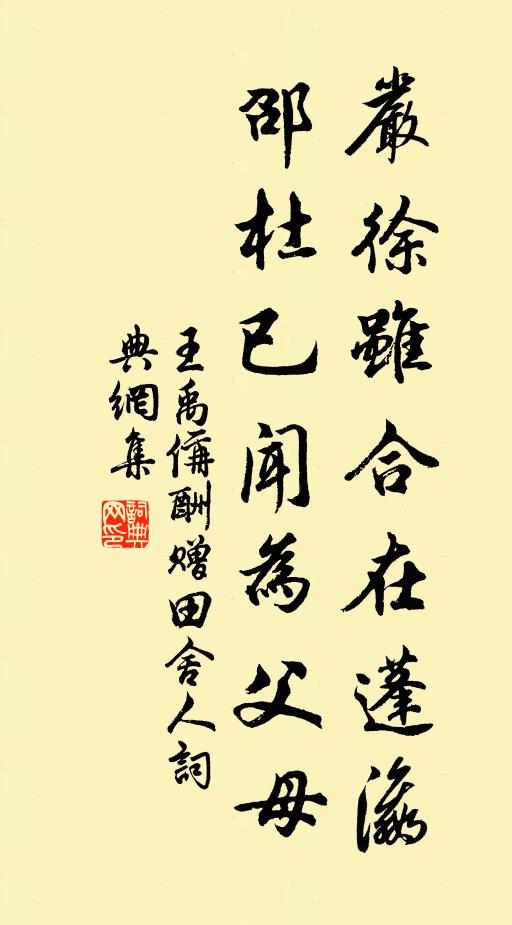 嚴徐雖合在蓬瀛
邵杜已聞為父母
王禹偁酬贈田舍人詞
典網集
詞典
网印